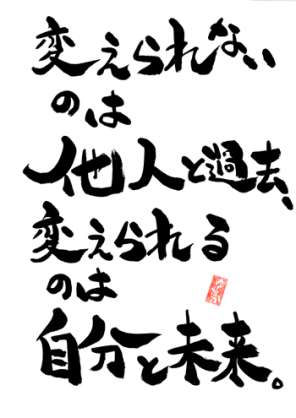 変えられない
のは
他人と過去、
変えられる
のは
自分と未来。